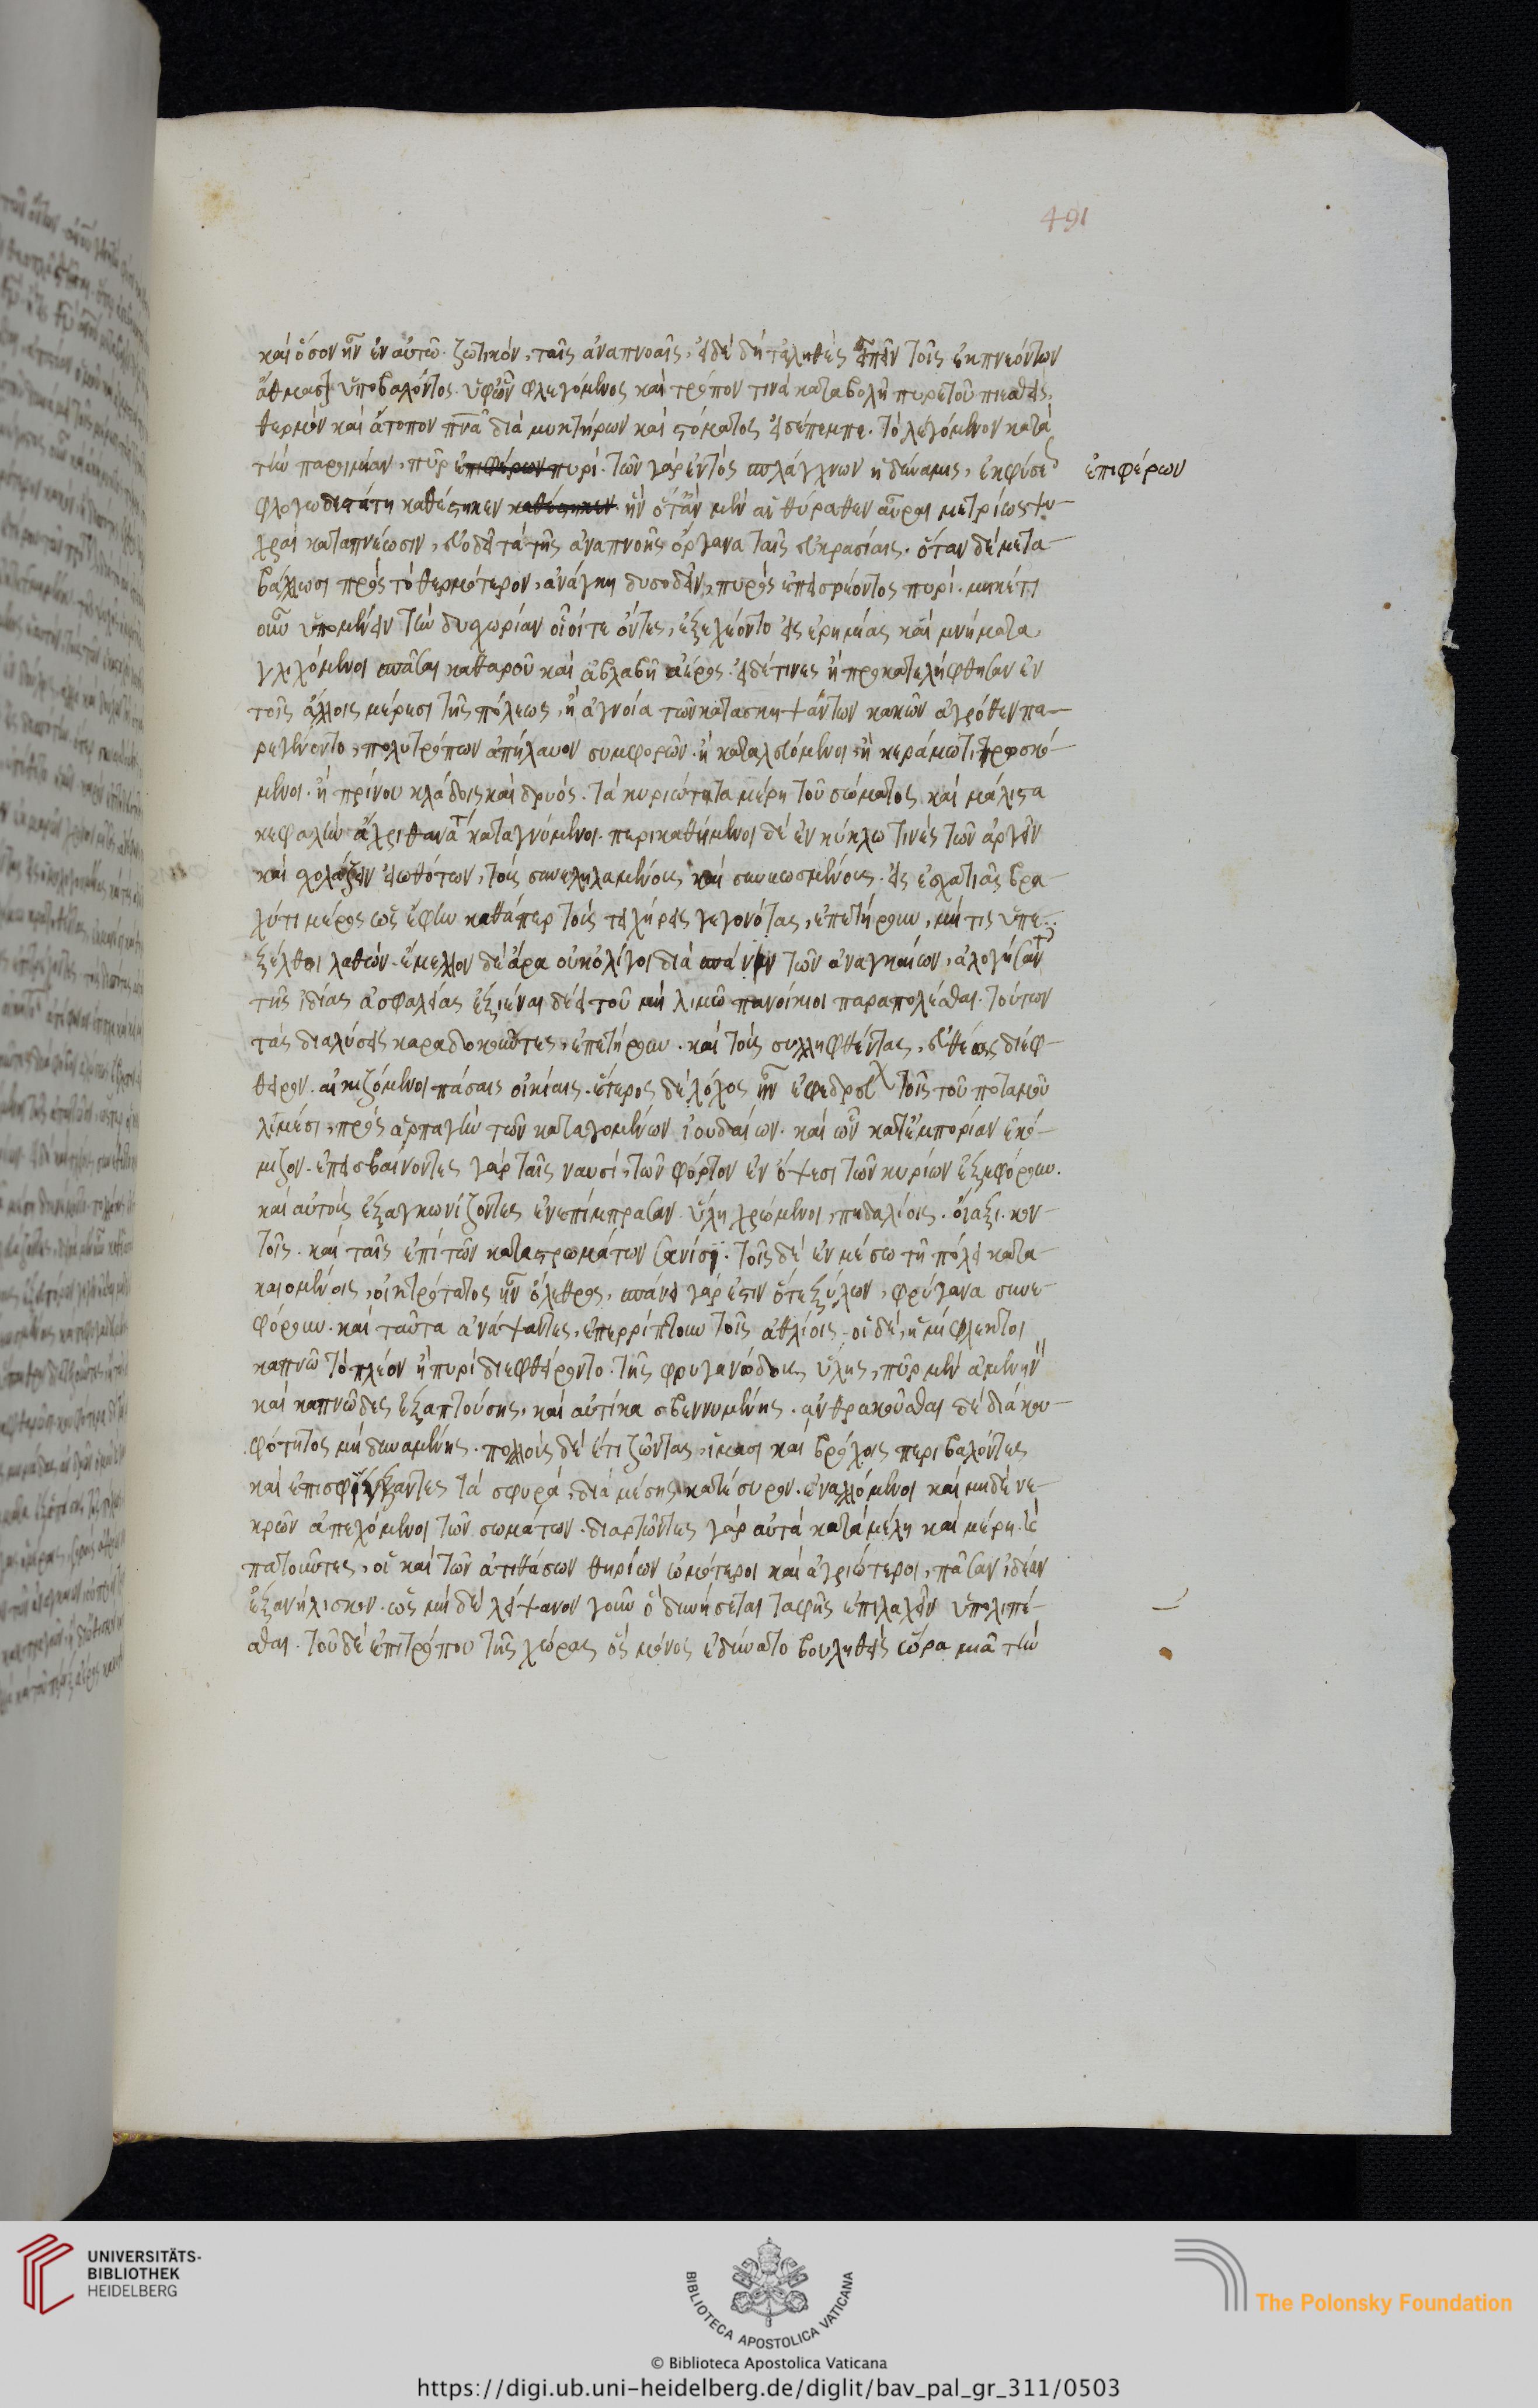 491
καὶ ὅσον ἦν ἐν αὐτῷ ζωτικόν, ταῖς ἀναπνοαῖς, εἰ δὲ δὴ τἀληθὲς εἰπεῖν τοῖς ἐκπνεόντων
ἄσθμασι ὑποβαλόντος. ὑφ' ὧν φλεγόμενος καὶ τρόπον τινὰ καταβολῇ πυρετοῦ πιεσθεὶς,
θερμὸν καὶ ἄτοπον πνα διὰ μυκτήρων καὶ στόματος εἰσέπεμπε. τὸ λεγόμενον κατὰ
τὴν παροιμίαν, πῦρ πυρί. τῶν γὰρ ἐντὸς σπλάγχνων ἡ δύναμις, ἐκ φύσε
ἐπιφέρων
φλογωδεστάτη καθέστηκεν ἣν ὅταν μὲν αἱ θύραθεν αὖραι μετρίως ψυ-
χραὶ καταπνέωσιν, εὐοδεῖ τὰ τῆς ἀναπνοῆς ὄργανα ταῖς εὐκρασίαις. ὅταν δὲ μετα-
βάλλωσι πρὸς τὸ θερμότερον, ἀνάγκη δυσοδεῖν, πυρὸς ἐπεισρέοντος πυρί. μηκέτι
οὖν ὑπομένειν τὴν δυσχωρίαν οἷοί τε ὄντες, ἐξεχέοντο εἰς ἐρημίας καὶ μνήματα,
γλιχόμενοι σπᾶσαι καθαροῦ καὶ ἀβλαβῆ ἀέρος. εἰ δέ τινες ἢ προκατελήφθησαν ἐν
τοῖς ἄλλοις μέρεσι τῆς πόλεως, ἢ ἀγνοίᾳ τῶν κατασκηψάντων κακῶν ἀγρόθεν πα-
ρεγένοντο, πολυτρόπων ἀπήλαυον συμφορῶν. ἢ καταλευόμενοι ἢ κεράμῳ τιτρωσκό-
μενοι. ἢ πρίνου κλάδοις καὶ δρυός. τὰ κυριώτατα μέρη τοῦ σώματος καὶ μάλιστα
κεφαλὴν ἄχρι θανάτ καταγνύμενοι. περικαθήμενοι δὲ ἐν κύκλῳ τινὲς τῶν ἀργεῖν
καὶ σχολάζειν εἰωθότων, τοὺς συνεληλαμένους, καὶ συνεωσμένους. εἰς ἐσχατιᾶς βρα-
χύ τι μέρος ὡς ἔφην καθάπερ τοὺς τειχήρεις γεγονότας, ἐπετήρουν, μή τις ὑπε-
ξέλθοι λαθών. ἔμελλον δὲ ἄρα οὐκ ὀλίγοι διὰ σπάνιν τῶν ἀναγκαίων, ἀλογήσαντ
τῆς ἰδίας ἀσφαλείας ἐξιέναι δέει τοῦ μὴ λιμῷ πανοίκιοι παραπολέσθαι. τούτων
τὰς διαλύσεις καραδοκοῦντες, ἐπετήρουν. καὶ τοὺς συλληφθέντας, εὐθέως διέφ-
θειρον. αἰκιζόμενοι πάσαις οἰκίαις. ἕτερος δὲ λόχος ἦν ἐφεδρεύ τοῖς τοῦ ποταμοῦ
λιμέσι, πρὸς ἁρπαγὴν τῶν καταγομένων ἰουδαίων. καὶ ὧν κατ' ἐμπορίαν ἐκό-
μιζον. ἐπεισβαίνοντες γὰρ ταῖς ναυσὶ, τῶν φόρτον ἐν ὄψεσι τῶν κυρίων ἐξεφόρουν.
καὶ αὐτοὺς ἐξαγκωνίζοντες ἐνεπίμπρασαν ὕλῃ χρώμενοι, πηδαλίοις. οἴαξι. κον-
τοῖς. καὶ ταῖς ἐπὶ τῶν καταστρωμάτων σανίσι. τοῖς δὲ ἐν μέσῳ τῇ πόλει κατα-
καιομένοις, οἰκτρότατος ἦν ὄλεθρος, σπάνει γὰρ ἔστιν ὅτε ξύλων, φρύγανα συνε-
φόρουν. καὶ ταῦτα ἀνάψαντες, ἐπερρίπτουν τοῖς ἀθλίοις. οἱ δὲ, ἡμίφλεκτοι
καπνῷ τὸ πλέον ἢ πυρὶ διεφθείροντο. τῆς φρυγανώδους ὕλης, πῦρ μὲν ἀμενην
καὶ καπνῶδες ἐξαπτούσης, καὶ αὐτίκα σβεννυμένης. ἀνθρακοῦσθαι δὲ διὰ κου-
φότητος μὴ δυναμένης. πολλοὺς δὲ ἔτι ζῶντας, ἱμᾶσι καὶ βρόχοις περιβαλόντες
καὶ ἐπισφίγξαντες τὰ σφυρά, διὰ μέσης κατέσυρον. ἐναλλόμενοι καὶ μηδὲ νε-
κρῶν ἀπεχόμενοι τῶν σωμάτων. διαρτῶντες γὰρ αὐτὰ κατὰ μέλη καὶ μέρη. καὶ
πατοῦντες, οἱ καὶ τῶν ἀτιθάσων θηρίων ὠμότεροι καὶ ἀγριώτεροι, πᾶσαν ἰδέαν
ἐξανήλισκον. ὡς μηδὲ λείψανον γοῦν ὃ δυνήσεται ταφῆς ἐπιλαχεῖν ὑπολιπέ-
σθαι. τοῦ δὲ ἐπιτρόπου τῆς χώρας ὃς μόνος ἐδύνατο βουληθεὶς ὥρᾳ μιᾷ τὴν
UNIVERSITÄTS-
BIBLIOTHEK
HEIDELBERG
BIBLIOTECA APOSTOLICA VATICANA
The Polonsky Foundation
© Biblioteca Apostolica Vaticana
https://digi.ub.uni-heidelberg.de/diglit/bav_pal_gr_311/0503